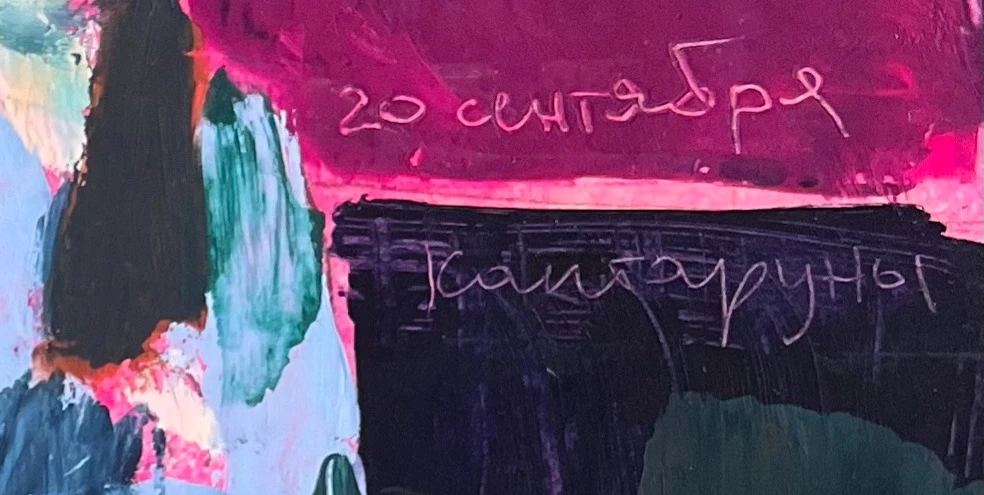 20 сентября
Каптаруны